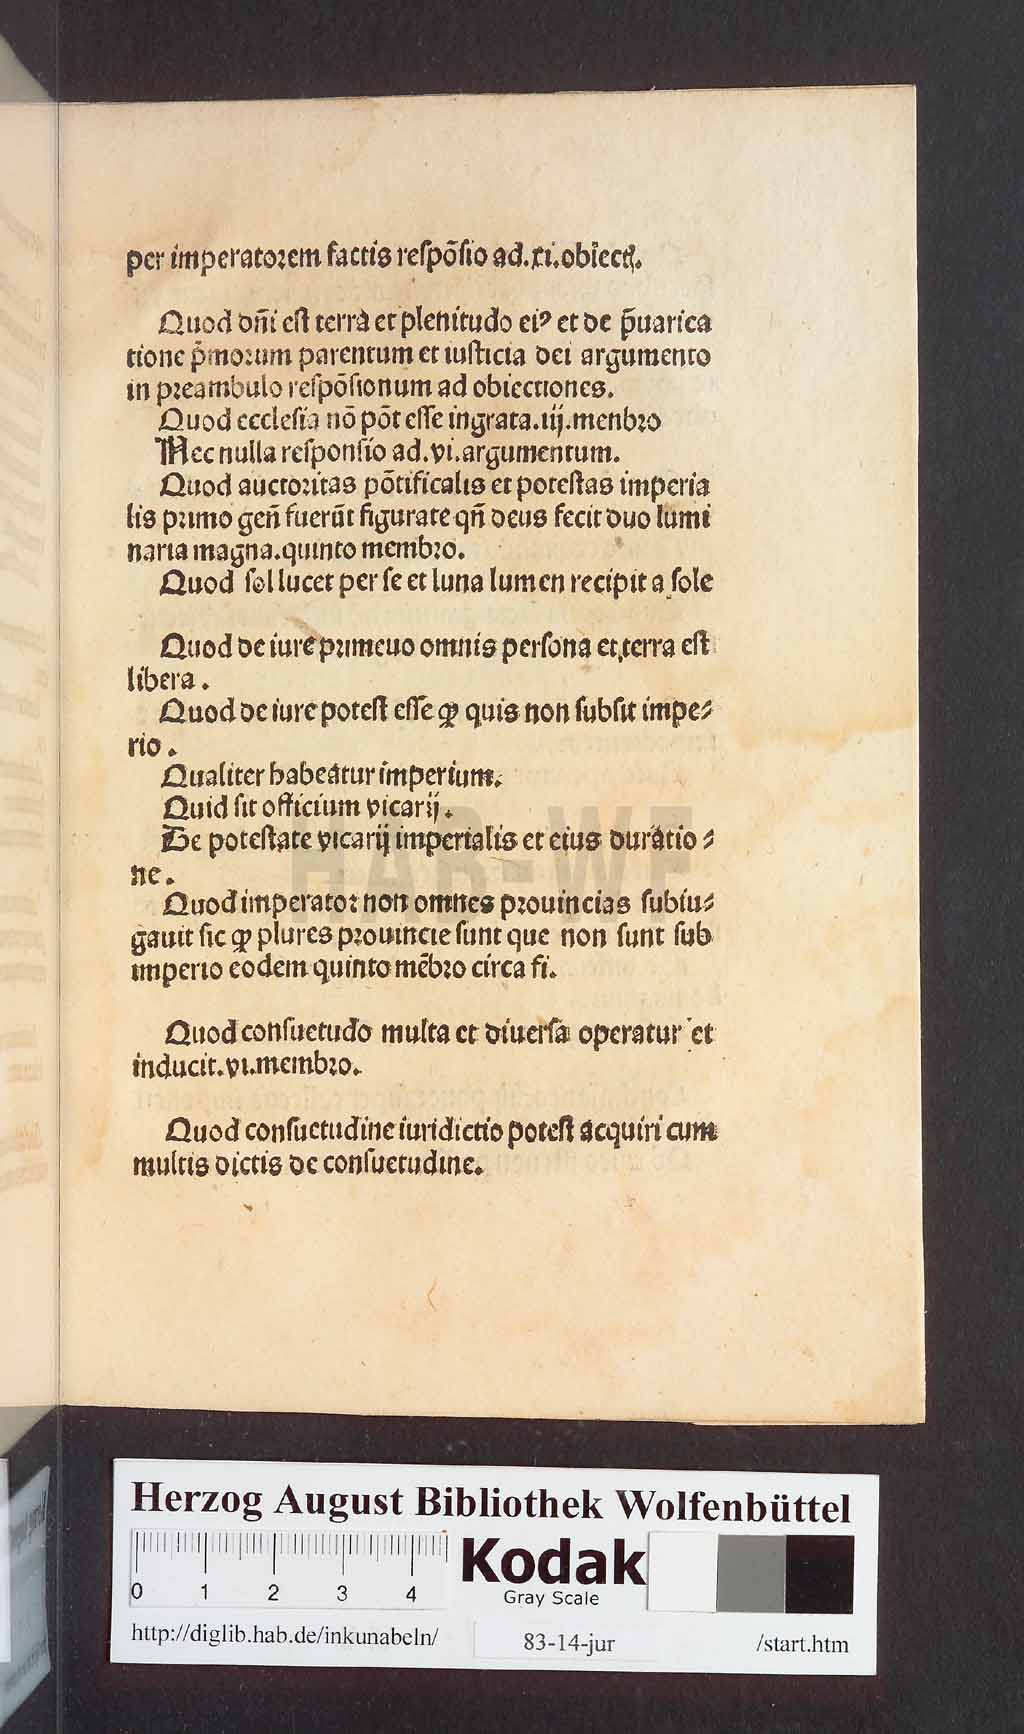 per imperatorem factis respōsio ad.xi.obiectꝭ.
Quod dn̄i est terra et plenitudo eiꝰ et de p̄uarica
tione p̄morum parentum et iusticia dei argumento
in preambulo respōsionum ad obiectiones.
Quod ecclesia nō pōt esse ingrata.iij.menbro
Nec nulla responsio ad.vi.argumentum.
Quod auctoritas pōtificalis et potestas imperia
lis primo gen̄ fuerūt figurate qn̄ deus fecit duo lumi
naria magna.quinto membro.
Quod sol lucet per se et luna lumen recipit a sole
Quod de iure primeuo omnis persona et terra est
libera.
Quod de iure potest esse ꝙ quis non subsit impe⸗
rio.
Qualiter habeatur imperium.
Quid sit officium vicarij.
De potestate vicarij imperialis et eius duratio⸗
ne.
Quod imperator non omnes prouincias subiu⸗
gauit sic ꝙ plures prouincie sunt que non sunt sub
imperio eodem quinto mēbro circa fi.
Quod consuetudo multa et diuersa operatur et
inducit.vi.membro.
Quod consuetudine iuridictio potest acquiri cum
multis dictis de consuetudine.
HAB-WF
Herzog August Bibliothek Wolfenbüttel
0 1 2 3 4
Kodak
Gray Scale
http://diglib.hab.de/inkunabeln/ 83-14-jur /start.htm